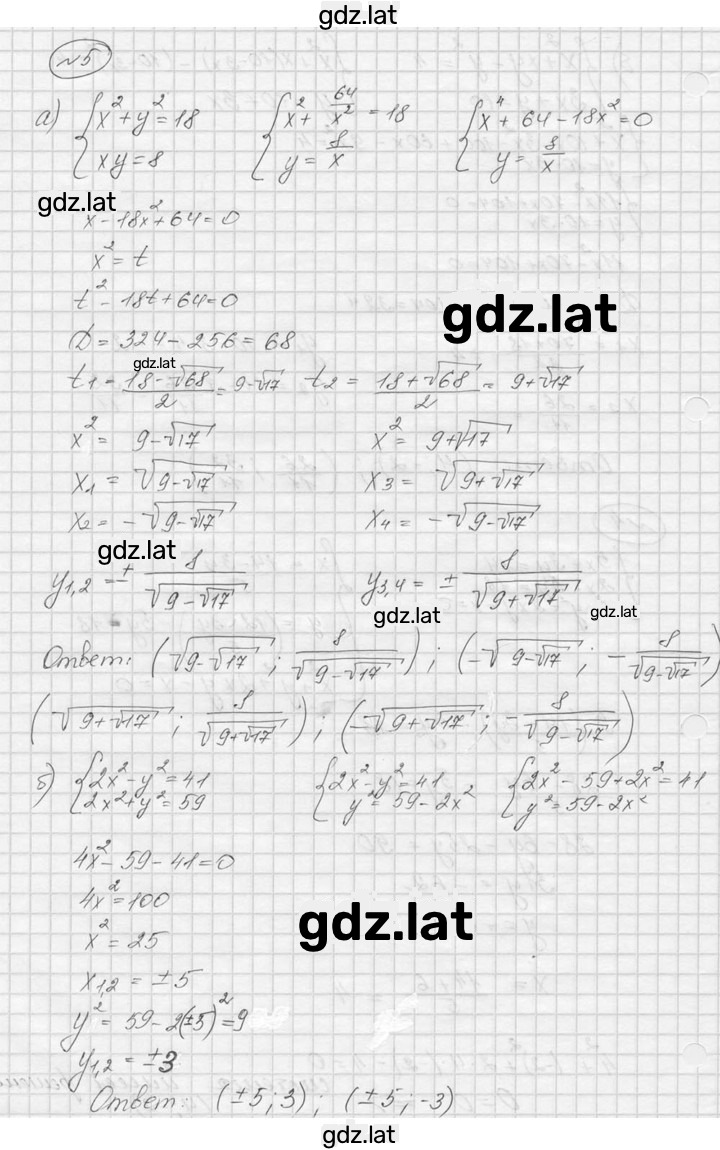 gdz.lat
№5
а) { x² + y² = 18   { x² + 64/x² = 18   { x⁴ + 64 - 18x² = 0
xy = 8   y = 8/x   y = 8/x
gdz.lat
x - 18x² + 64 = 0
x² = t
t² - 18t + 64 = 0
gdz.lat
D = 324 - 256 = 68
gdz.lat
t₁ = (18 - √68)/2 = 9 - √17   t₂ = (18 + √68)/2 = 9 + √17
x² = 9 - √17   x² = 9 + √17
x₁ = √(9 - √17)   x₃ = √(9 + √17)
x₂ = -√(9 - √17)   x₄ = -√(9 - √17)
gdz.lat
y₁,₂ = ± 8/√(9 - √17)   y₃,₄ = ± 8/√(9 + √17)
gdz.lat   gdz.lat
Ответ: (√(9 - √17); 8/√(9 - √17)); (-√(9 - √17); - 8/√(9 - √17))
(√(9 + √17); 8/√(9 + √17)); (-√(9 + √17); - 8/√(9 - √17))
б) { 2x² - y² = 41   { 2x² - y² = 41   { 2x² - 59 + 2x² = 41
2x² + y² = 59   y² = 59 - 2x²   y² = 59 - 2x²
4x² - 59 - 41 = 0
4x² = 100
gdz.lat
x² = 25
x₁,₂ = ±5
y² = 59 - 2(±5)² = 9
y₁,₂ = ±3
Ответ: (±5; 3); (±5; -3)
gdz.lat